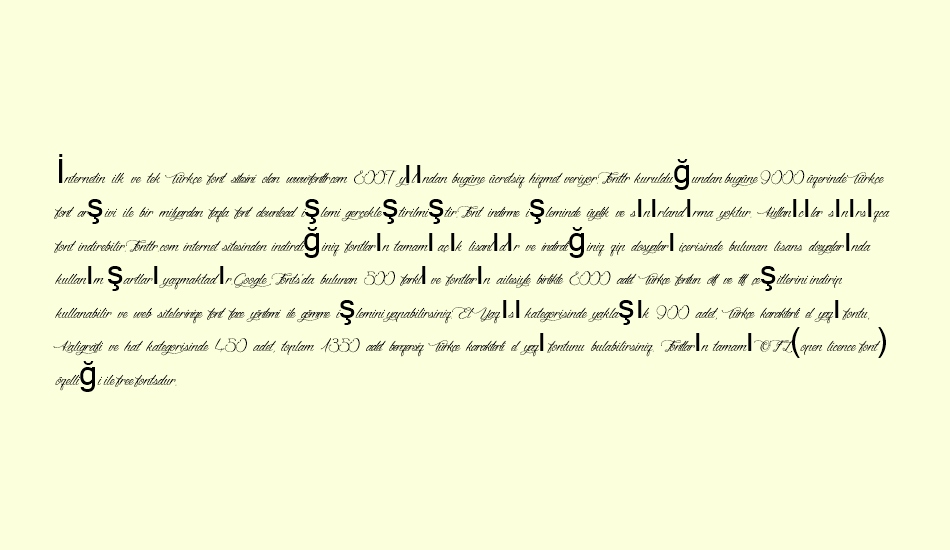 İnternetin ilk ve tek Türkçe font sitesini olan www.fonttr.com 2007 yılından bugüne ücretsiz hizmet veriyor. Fonttr kurulduğundan bugüne 9000 üzerinde Türkçe
font arşivi ile bir milyardan fazla font download işlemi gerçekleştirilmiştir. Font indirme işleminde üyelik ve sınırlandırma yoktur. Kullanıcılar sınırsızca
font indirebilir. Fonttr.com internet sitesinden indirdiğiniz fontların tamamı açık lisanlıdır ve indirdiğiniz zip dosyaları içerisinde bulunan lisans dosyalarında
kullanım şartları yazmaktadır. Google Fonts'da bulunan 500 farklı ve fontların ailesiyle birlikte 2000 adet Türkçe fontun otf ve ttf çeşitlerini indirip
kullanabilir ve web sitelerinize font face yöntemi ile gömme işlemini yapabilirsiniz. El Yazısı kategorisinde yaklaşık 900 adet, Türkçe karakterli el yazı fontu,
Kaligrafi ve hat kategorisinde 450 adet, toplam 1350 adet benzersiz Türkçe karakterli el yazı fontunu bulabilirsiniz. Fontların tamamı OFL (open licence font)
özelliği ile free fontsdur.